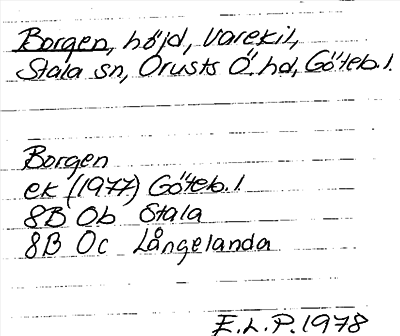 Borgen, höjd, Varekil,
Stala sn, Orusts Ö. hd, Göteb. l.
Borgen
ek (1977) Göteb. l.
8B 0b Stala
8B 0c Långelanda
E.L.P. 1978